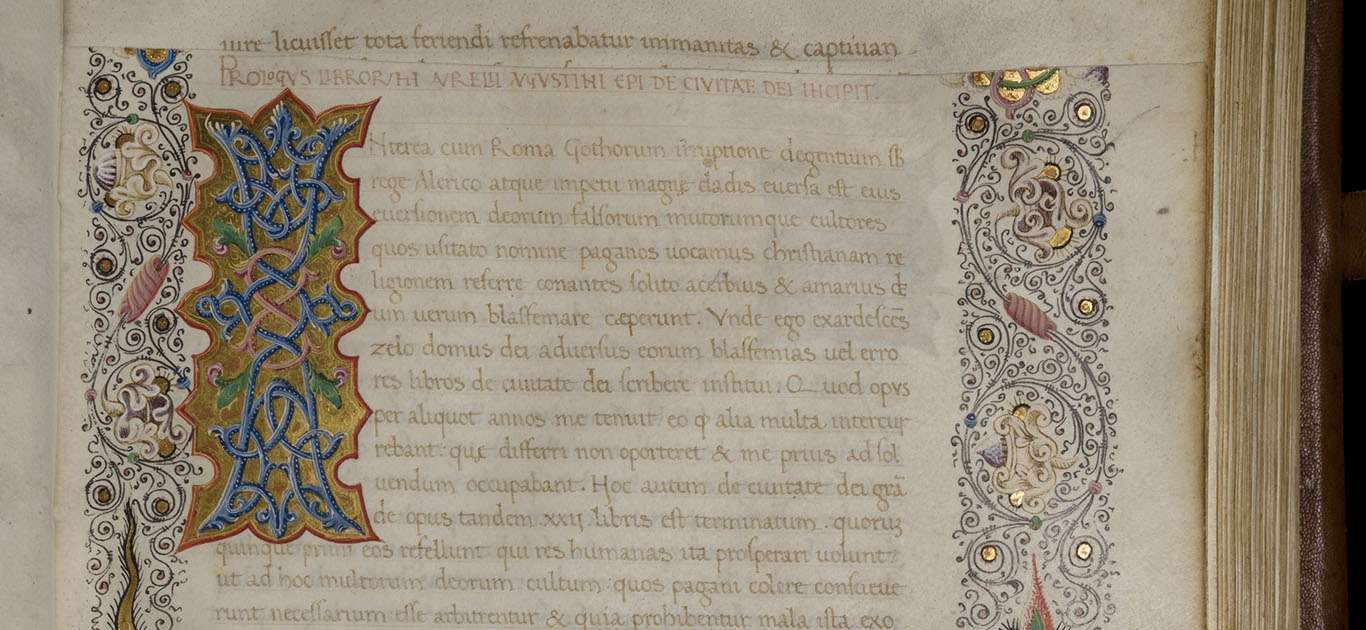 iure licuisset tota feriendi refrenabatur immanitas & captiuan
PROLOGVS LIBRORVM AVRELII AVGVSTINI EPI DE CIVITATE DEI INCIPIT.
INterea cum Roma Gothorum irruptione degentium sb
rege Alerico atque impetu magnę cladis euersa est eius
euersionem deorum falsorum mutorumque cultores
quos usitato nomine paganos uocamus christianam re
ligionem referre conantes solito acerbius & amarius de
um uerum blasfemare cæperunt. Vnde ego exardescēs
zelo domus dei aduersus eorum blasfemias uel erro
res libros de ciuitate dei scribere institui. Quod opvs
per aliquot annos me tenuit: eo ꝙ alia multa intercur
rebant: quę differri non oporteret & me prius ad sol
uendum occupabant. Hoc autem de ciuitate dei grā
de opus tandem .xxij. libris est terminatum. quoruꝫ
quinque primi eos refellunt qui res humanas ita prosperari uolunt:
ut ad hoc multorum deorum cultum: quos pagani colere consueue
runt necessarium esse arbitrentur & quia prohibentur mala ista exo